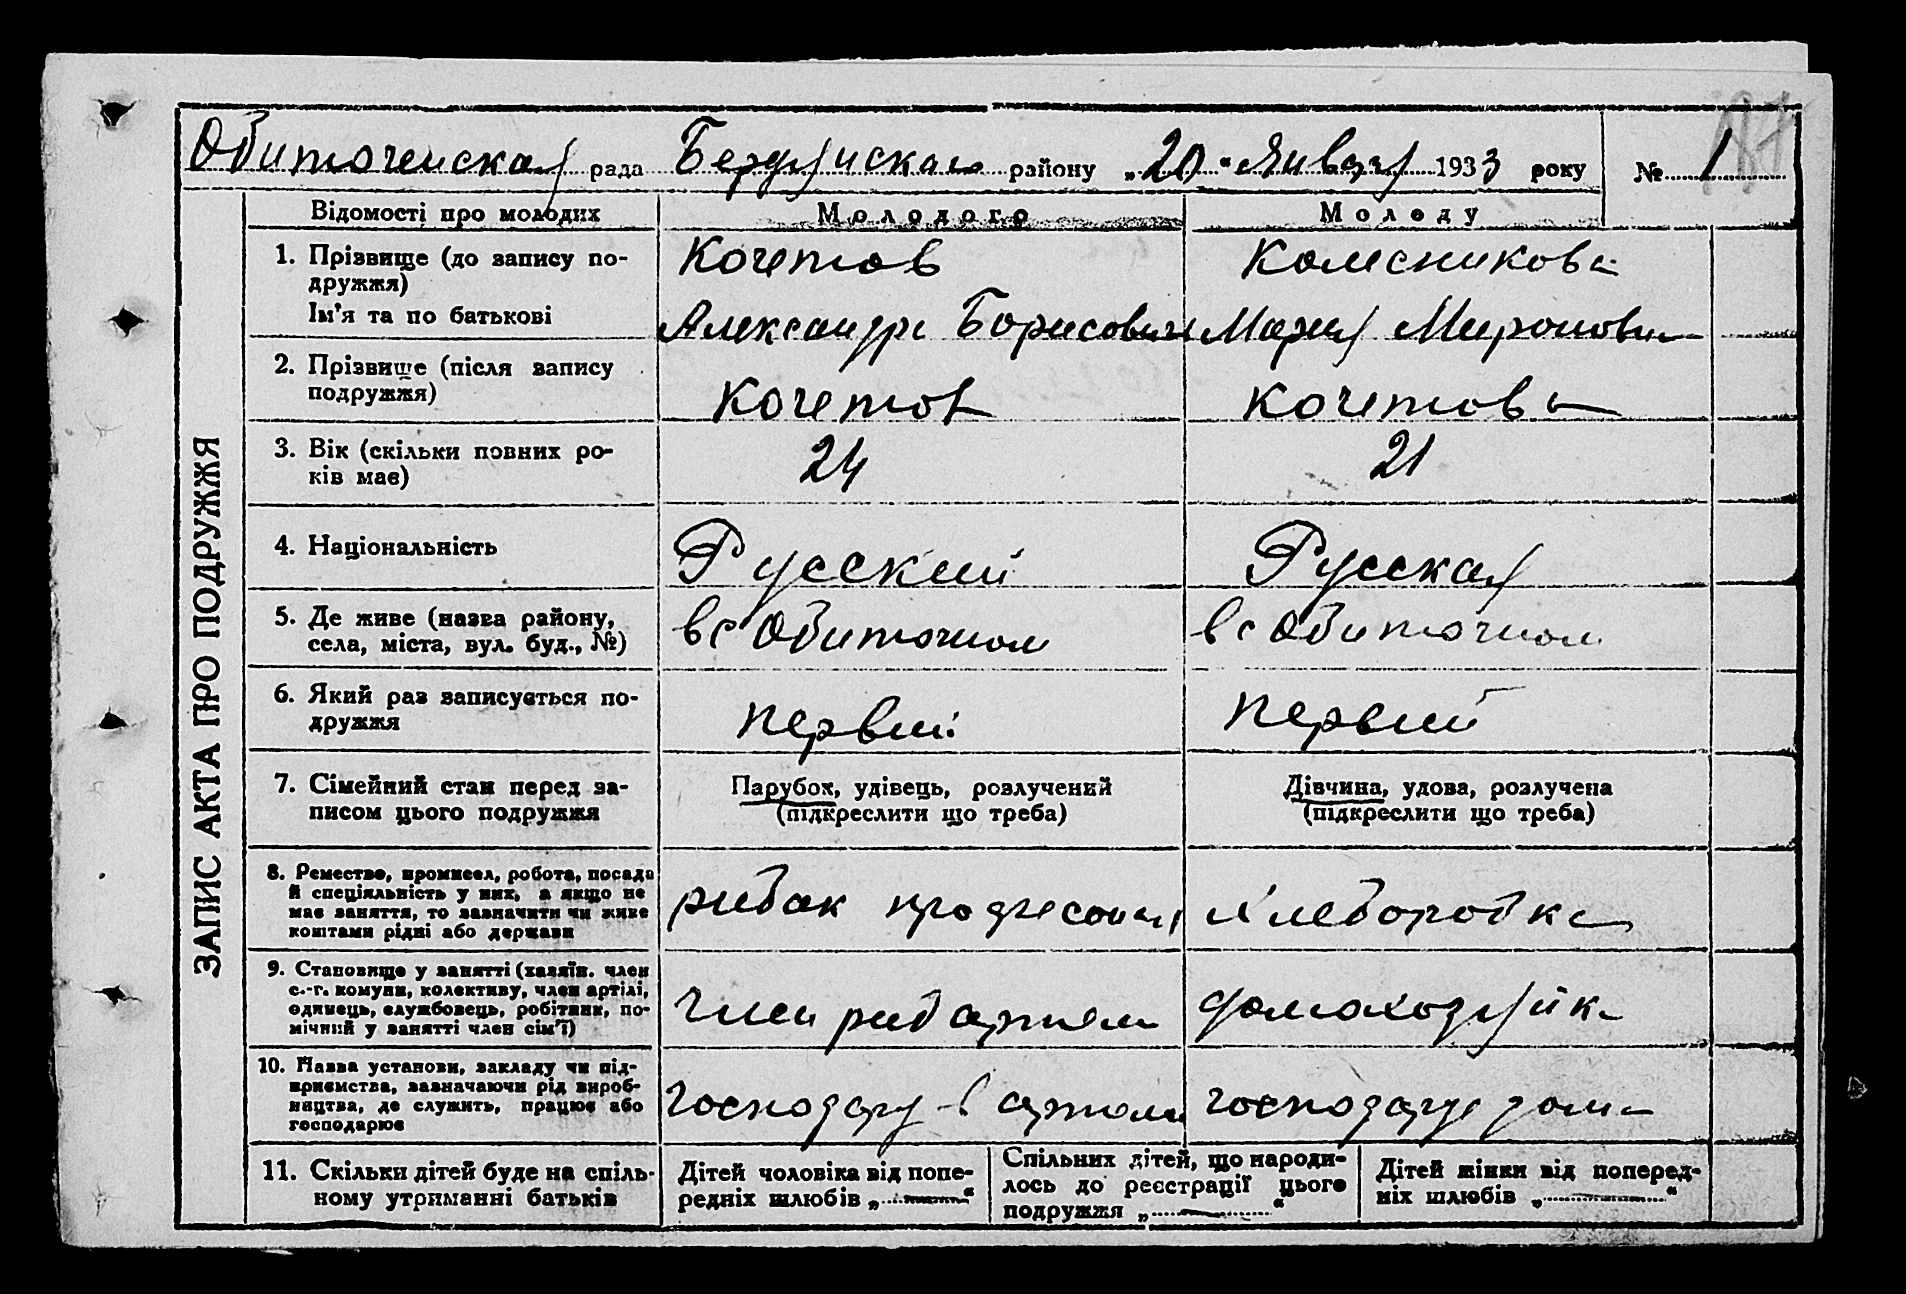 Обиточенская рада Бердянского району „20“ Января 1933 року № 1
Відомості про молодих Молодого Молоду
1. Прізвище (до запису по-
дружжя) Кочетов Колесникова
Ім'я та по батькові Александр Борисович Мария Мироновна
2. Прізвище (після запису
подружжя) Кочетов Кочетова
3. Вік (скільки повних ро-
ків має) 24 21
4. Національність Русский Русская
5. Де живе (назва району,
села, міста, вул. буд., №) в с Обиточном в с Обиточном
6. Який раз записується по-
дружжя первый первый
7. Сімейний стан перед за-
писом цього подружжя
Парубок, удівець, розлучений
(підкреслити що треба)
Дівчина, удова, розлучена
(підкреслити що треба)
8. Ремество, промисел, робота, посада
й спеціяльність у них, а якщо не
має заняття, то зазначити чи живе
коштами рідні або держави
рибак хлеборобка
9. Становище у занятті (хазяїн. член
с.-г. комуни, колективу, член артілі,
одинець, службовець, робітник, по-
мічний у занятті член сім'ї)
член риб артели домохозяйка
10. Назва установи, закладу чи під-
приємства, зазначаючи рід вироб-
ництва, де служить, працює або
господарює
в артели
11. Скільки дітей буде на спіль-
ному утриманні батьків
Дітей чоловіка від попе-
редніх шлюбів „ “
Спільних дітей, що народи-
лось до реєстрації цього
подружжя „ “
Дітей жінки від поперед-
ніх шлюбів „ “
ЗАПИС АКТА ПРО ПОДРУЖЖЯ